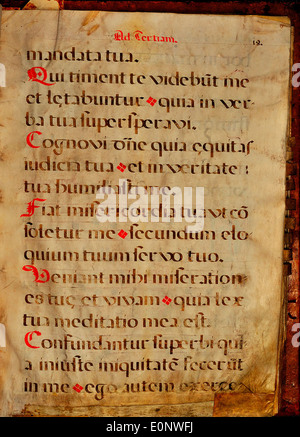 Ad Tertiam.
19.
mandata tua.
Qui timent te videbūt me
et lętabuntur quia in ver-
ba tua supersperavi.
Cognovi Dn̄e quia equitas
iudicia tua et in veritate
tua humiliasti me.
Fiat misericordia tua vt cō
soletur me secundum elo
quium tuum servo tuo.
Veniant mihi miseration
es tuę et vivam quia lex
tua meditatio mea est.
Confundantur superbi qui
a iniuste iniquitatē fecerūt
in me ego autem exerce
alamy
E0NWFJ